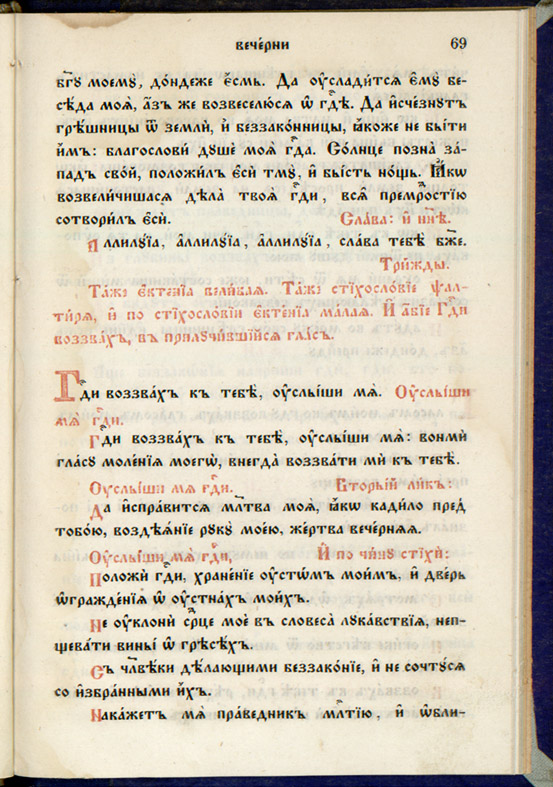 вече́рни 69
бг҃ꙋ моемꙋ̀, до́ндеже є҆́смь. Да ᲂу҆слади́тсѧ є҆мꙋ̀ бе-
сѣ́да моѧ̀, а҆́зъ же возвеселю́сѧ ѡ҆ гдⷭ҇ѣ. Да и҆счезнꙋтъ
грѣ̑шницы ѿ землѝ, и҆ беззако́нницы, ꙗ҆́коже не бы́ти
и҆̀мъ: благословѝ дꙋшѐ моѧ̀ гдⷭ҇а. Со́лнце позна̀ за́-
падъ сво́й, положи́лъ є҆сѝ тмꙋ̀, и҆ бы́сть но́щь. Ꙗ҆́кѡ
возвели́чишасѧ дѣла̀ твоѧ̑ гдⷭ҇и, всѧ̑ премрⷣостїю
сотвори́лъ є҆сѝ. Сла́ва: и҆ ны́нѣ.
А҆ллилꙋ́їа, а҆ллилꙋ́їа, а҆ллилꙋ́їа, сла́ва тебѣ̀ бж҃е.
Три́жды.
Та́же є҆ктенїа̀ вели́каѧ. Та́же стїхосло́вїе ѱал-
ти́рѧ, и҆ по стїхосло́вїи є҆ктенїа̀ ма́лаѧ. И҆ а҆́бїе Гдⷭ҇и
воззва́хъ, въ прилꙋчи́вшїйсѧ гла́съ.
Гдⷭ҇и воззва́хъ къ тебѣ̀, ᲂу҆слы́ши мѧ̀. Оу҆слы́ши
мѧ̀ гдⷭ҇и.
Гдⷭ҇и воззва́хъ къ тебѣ̀, ᲂу҆слы́ши мѧ̀: вонмѝ
гла́сꙋ моле́нїѧ моегѡ̀, внегда̀ воззва́ти мѝ къ тебѣ̀.
Оу҆слы́ши мѧ̀ гдⷭ҇и. Вторы́й ли́къ:
Да и҆спра́витсѧ мл҃тва моѧ̀, ꙗ҆́кѡ кади́ло пред̾
тобо́ю, воздѣѧ́нїе рꙋкꙋ̀ моє́ю, же́ртва вече́рнѧѧ.
Оу҆слы́ши мѧ̀ гдⷭ҇и, И҆ по чи́нꙋ стїхѝ:
Положѝ гдⷭ҇и, хране́нїе ᲂу҆стѡ́мъ мои̑мъ, и҆ две́рь
ѡ҆гражде́нїѧ ѡ҆ ᲂу҆стна́хъ мои́хъ.
Не ᲂу҆клонѝ срⷣце моѐ въ словеса̀ лꙋка́вствїѧ, неп-
щева́ти вины̑ ѡ҆ грѣсѣ́хъ.
Съ человѣ̑ки дѣ́лающими беззако́нїе, и҆ не сочтꙋ́сѧ
со и҆збра́нными и҆́хъ.
Нака́жетъ мѧ̀ пра́ведникъ млⷭ҇тїю, и҆ ѡ҆бли-